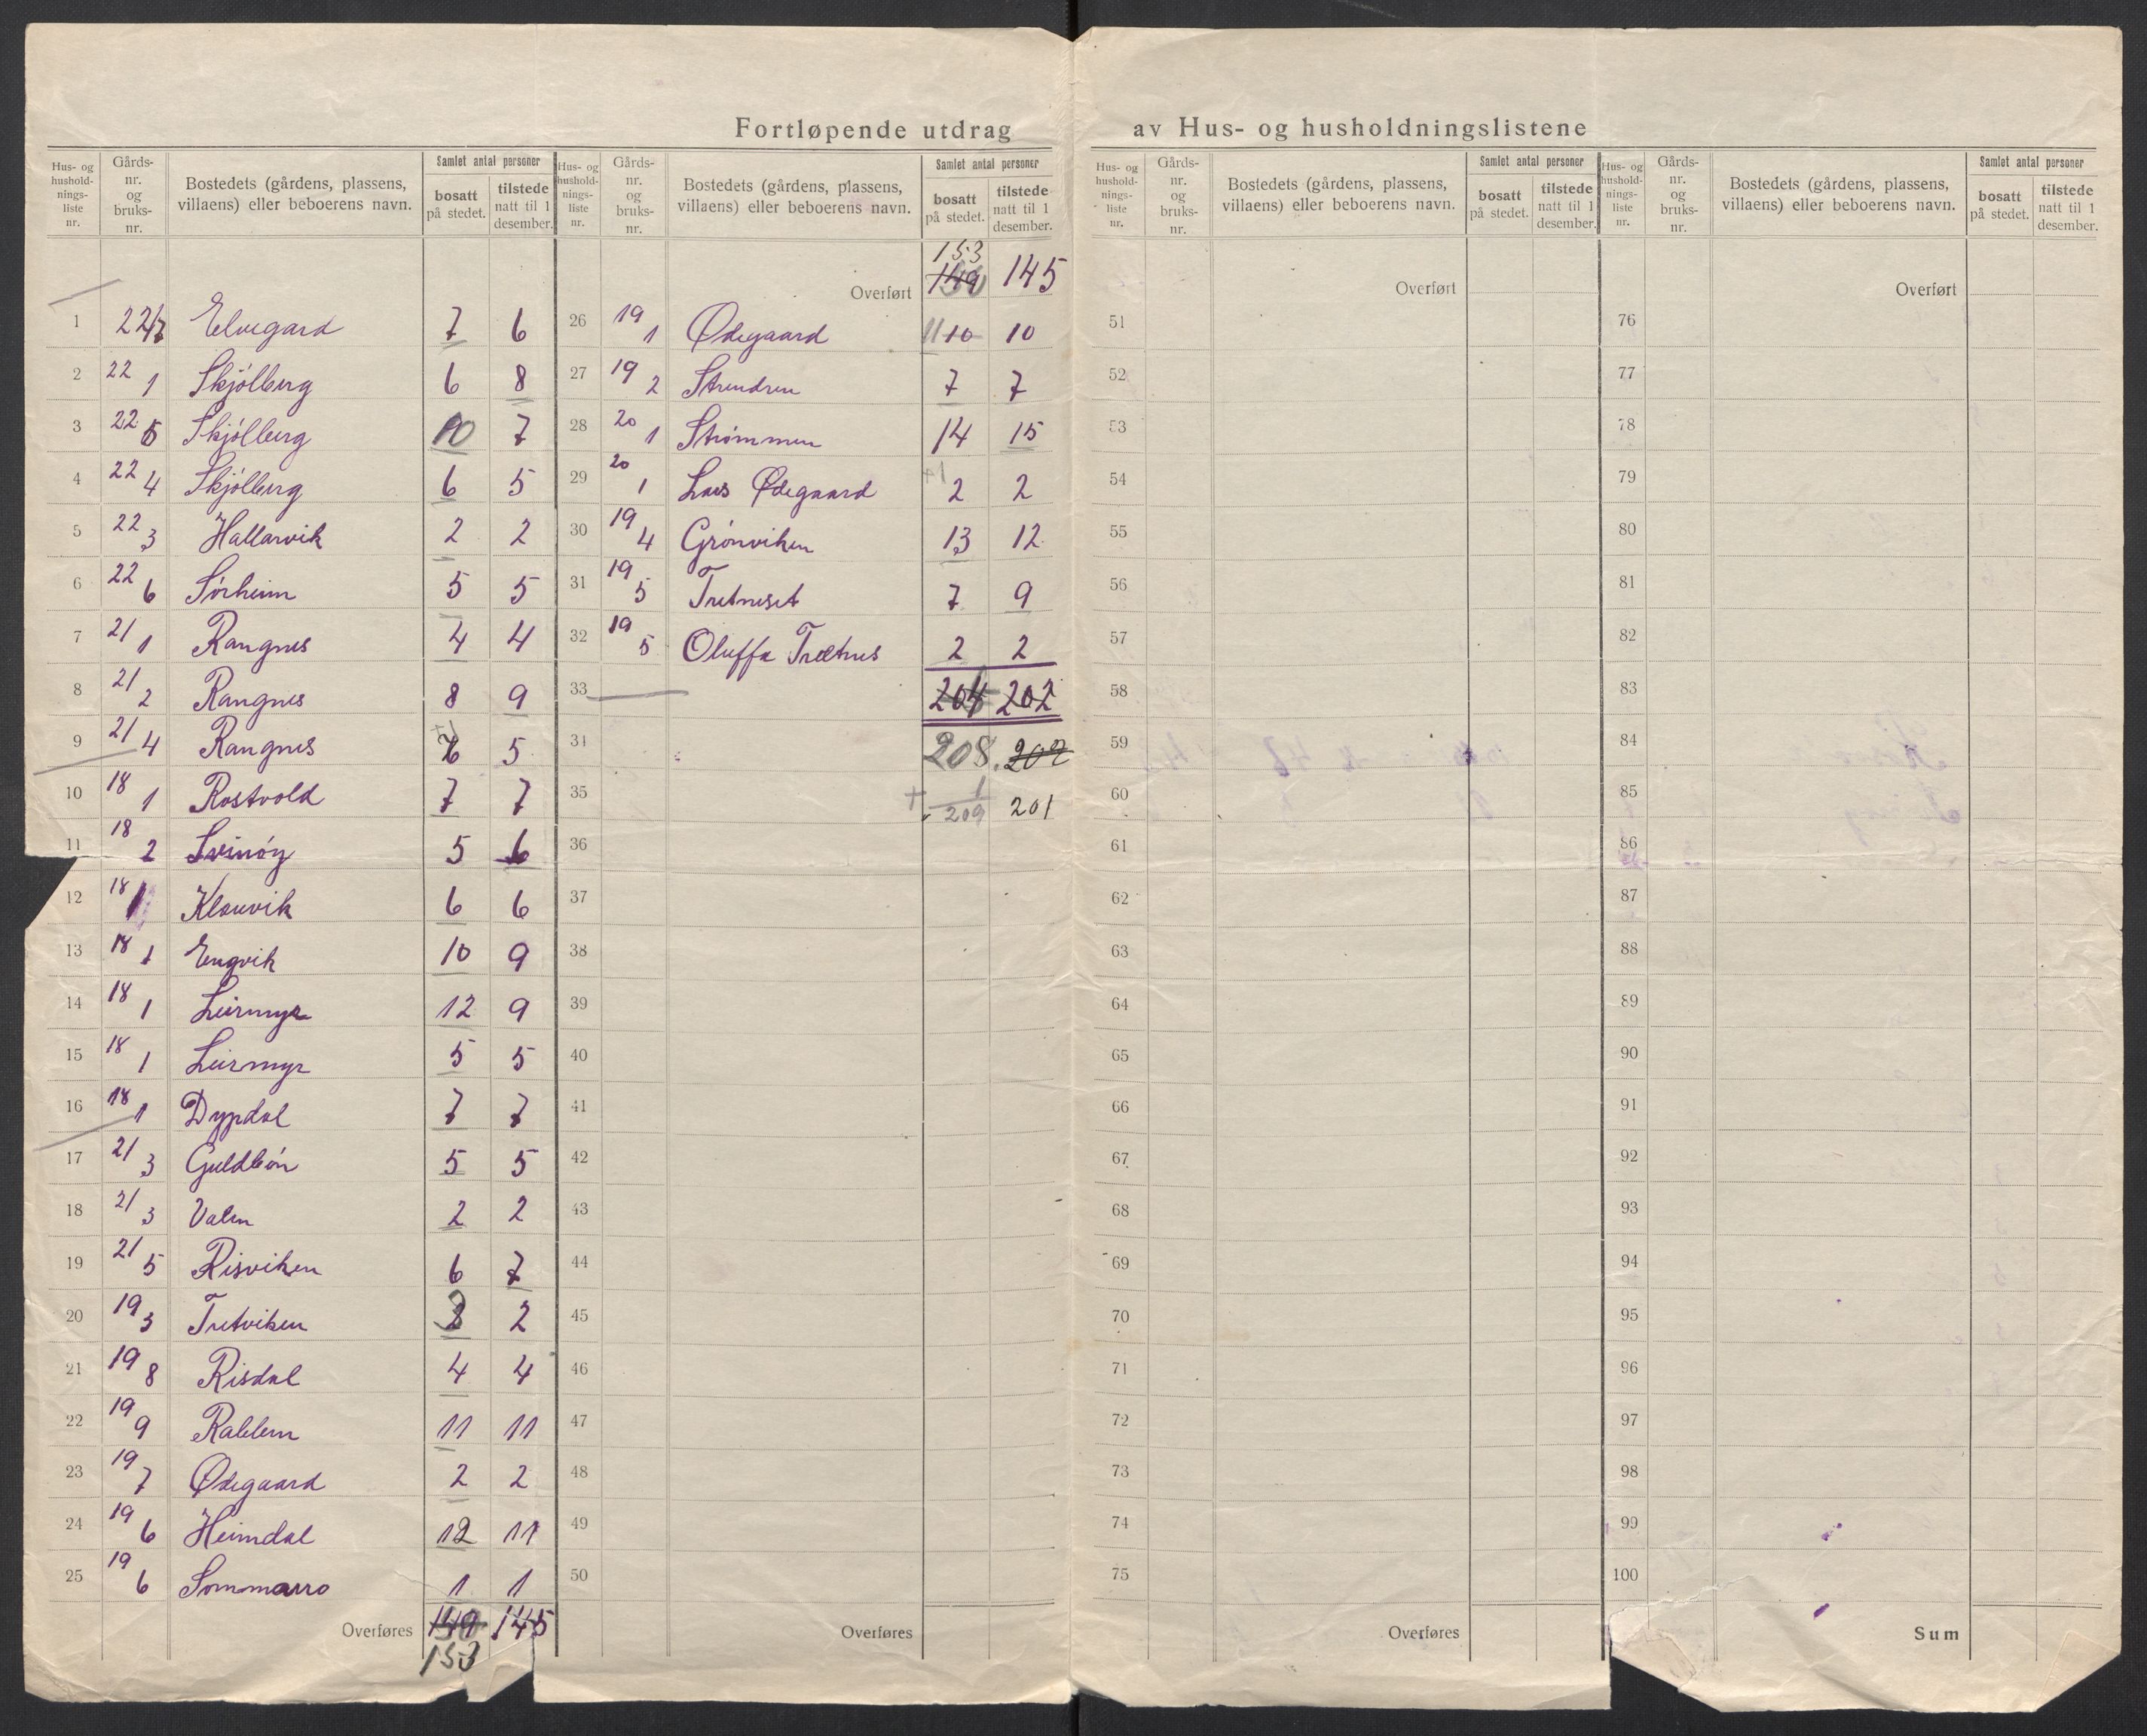 Fortløpende utdrag av Hus- og husholdningslistene
Hus- og hushold- nings- liste nr. | Gårds- nr. og bruks- nr. | Bostedets (gårdens, plassens, villaens) eller beboerens navn. | Samlet antal personer | bosatt på stedet. | tilstede natt til 1 desember.
1 22/7 Elvegard 7 6
2 22 1 Skjølberg 6 8
3 22 5 Skjølberg 10 7
4 22 4 Skjølberg 6 5
5 22 3 Hallarvik 2 2
6 22 6 Sørheim 5 5
7 21 1 Rangnes 4 4
8 21 2 Rangnes 8 9
9 21 4 Rangnes 5
10 18 1 Rostvold 7 7
11 18 2 Svinøy 5 6
12 18 1 Klauvik 6 6
13 18 1 Engvik 10 9
14 18 1 Leirmyr 12 9
15 18 1 Leirmyr 5 5
16 18 1 Dypdal 7 7
17 21 3 Guldbön 5 5
18 21 3 Valen 2 2
19 21 5 Risviken 6 7
20 19 3 Tretviken 3 2
21 19 8 Risdal 4 4
22 19 9 Rablem 11 11
23 19 7 Ødegaard 2 2
24 19 6 Heimdal 12 11
25 19 6 Sommarro 1 1
Overføres 149 145
153
Hus- og hushold- nings- liste nr. | Gårds- nr. og bruks- nr. | Bostedets (gårdens, plassens, villaens) eller beboerens navn. | Samlet antal personer | bosatt på stedet. | tilstede natt til 1 desember.
153
Overført 149 145
26 19 1 Ødegaard 11 10 10
27 19 2 Strendren 7 7
28 20 1 Strømmen 14 15
29 20 1 Lars Ødegaard +1 2 2
30 19 4 Grønviken 13 12
31 19 5 Tretneset 7 9
32 19 5 Oluffa Trætnes 2 2
33 204 202
31 208. 202
35 + 1
209 201
36
37
38
39
40
41
42
43
44
45
46
47
48
49
50
Overføres
Hus- og hushold- nings- liste nr. | Gårds- nr. og bruks- nr. | Bostedets (gårdens, plassens, villaens) eller beboerens navn. | Samlet antal personer | bosatt på stedet. | tilstede natt til 1 desember.
Overført
51
52
53
54
55
56
57
58
59
60
61
62
63
64
65
66
67
68
69
70
71
72
73
74
75
Overføres
Hus- og hushold- nings- liste nr. | Gårds- nr. og bruks- nr. | Bostedets (gårdens, plassens, villaens) eller beboerens navn. | Samlet antal personer | bosatt på stedet. | tilstede natt til 1 desember.
Overført
76
77
78
79
80
81
82
83
84
85
86
87
88
89
90
91
92
93
94
95
96
97
98
99
100
Sum